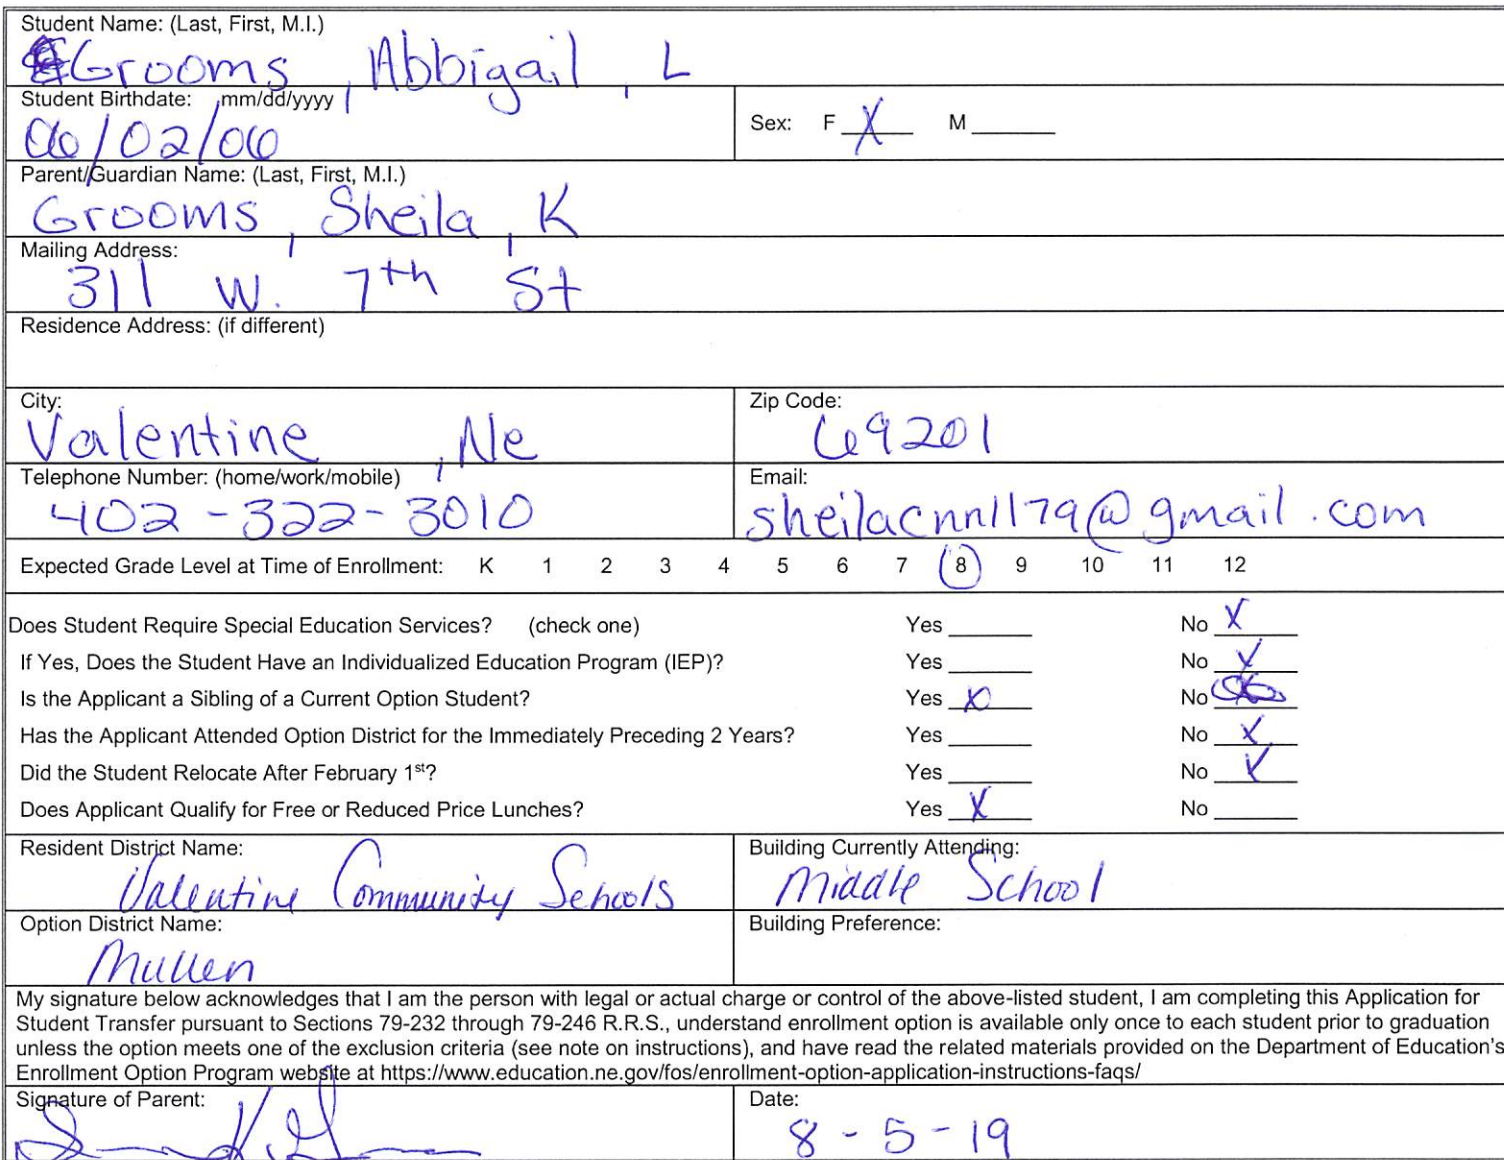 Student Name: (Last, First, M.I.)
Grooms, Abbigail, L
Student Birthdate: mm/dd/yyyy
06/02/06
Sex: F X M
Parent/Guardian Name: (Last, First, M.I.)
Grooms, Sheila, K
Mailing Address:
311 W. 7th St
Residence Address: (if different)
City:
Valentine, Ne
Zip Code:
69201
Telephone Number: (home/work/mobile)
402-322-3010
Email:
sheilacnn1179@gmail.com
Expected Grade Level at Time of Enrollment: K 1 2 3 4 5 6 7 8 9 10 11 12
Does Student Require Special Education Services? (check one) Yes ____ No X
If Yes, Does the Student Have an Individualized Education Program (IEP)? Yes ____ No X
Is the Applicant a Sibling of a Current Option Student? Yes X No ____
Has the Applicant Attended Option District for the Immediately Preceding 2 Years? Yes ____ No X
Did the Student Relocate After February 1st? Yes ____ No X
Does Applicant Qualify for Free or Reduced Price Lunches? Yes X No ____
Resident District Name:
Valentine Community Schools
Building Currently Attending:
Middle School
Option District Name:
Mullen
Building Preference:
My signature below acknowledges that I am the person with legal or actual charge or control of the above-listed student, I am completing this Application for
Student Transfer pursuant to Sections 79-232 through 79-246 R.R.S., understand enrollment option is available only once to each student prior to graduation
unless the option meets one of the exclusion criteria (see note on instructions), and have read the related materials provided on the Department of Education's
Enrollment Option Program website at https://www.education.ne.gov/fos/enrollment-option-application-instructions-faqs/
Signature of Parent:
Date:
8-5-19